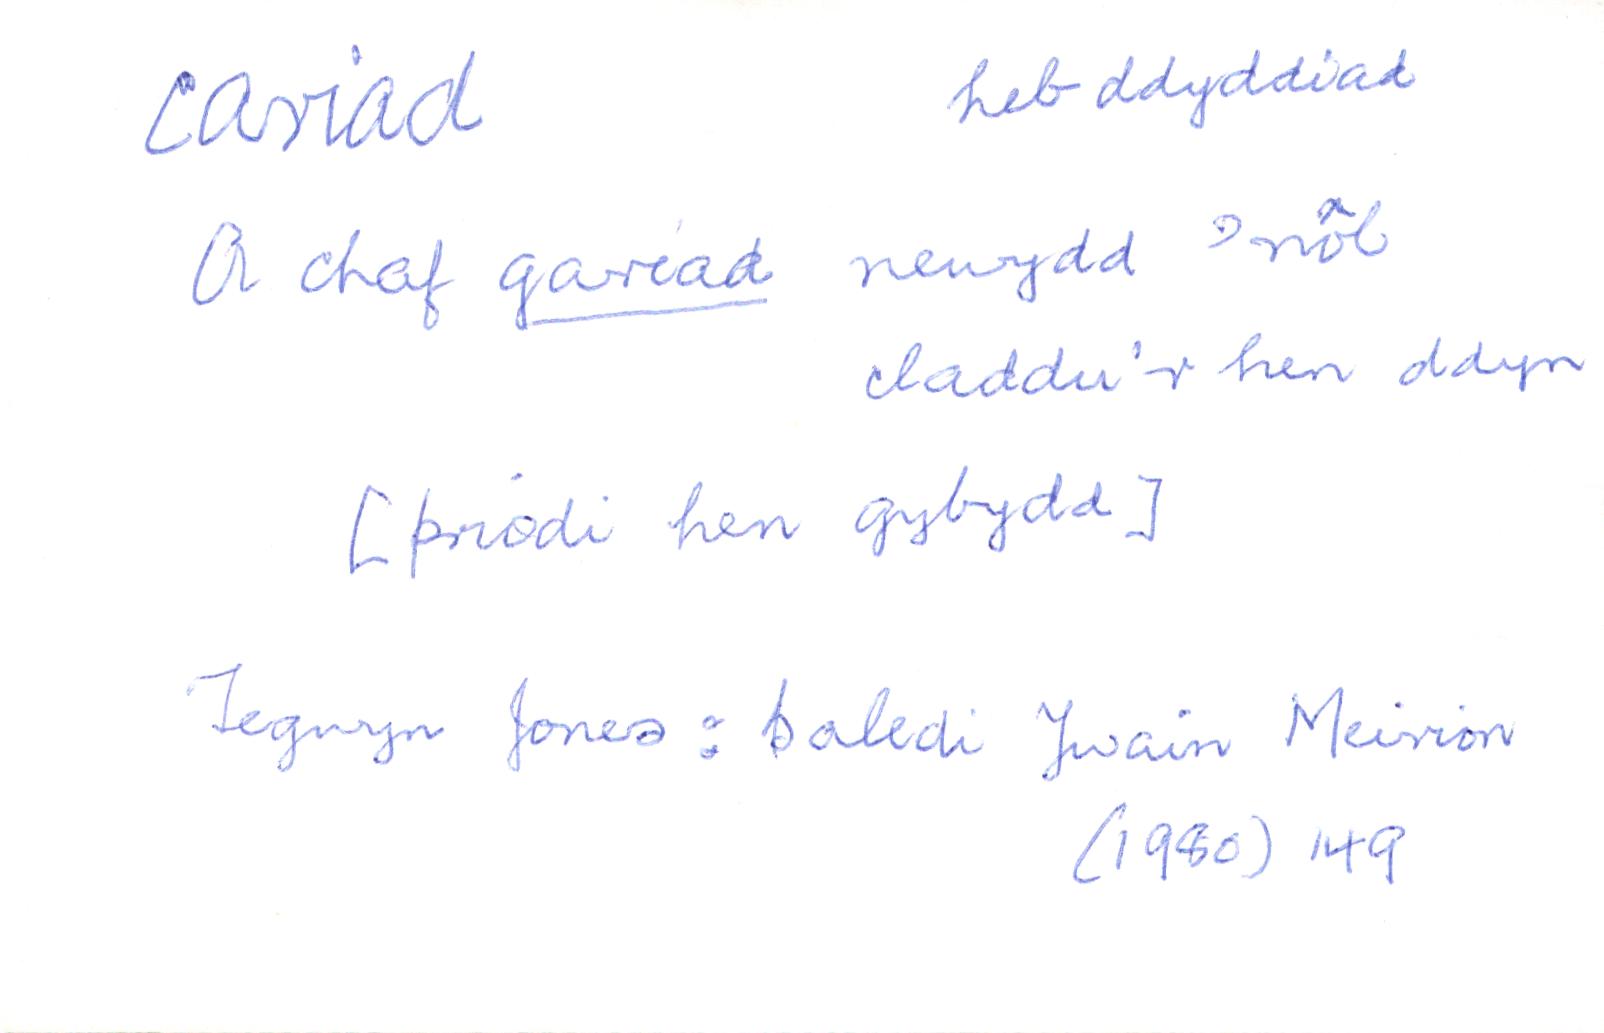 cariad heb ddyddiad
A chaf gariad newydd 'nôl
claddu'r hen ddyn
[priodi hen gybydd]
Tegwyn Jones: baledi Ywain Meirion
(1980) 149